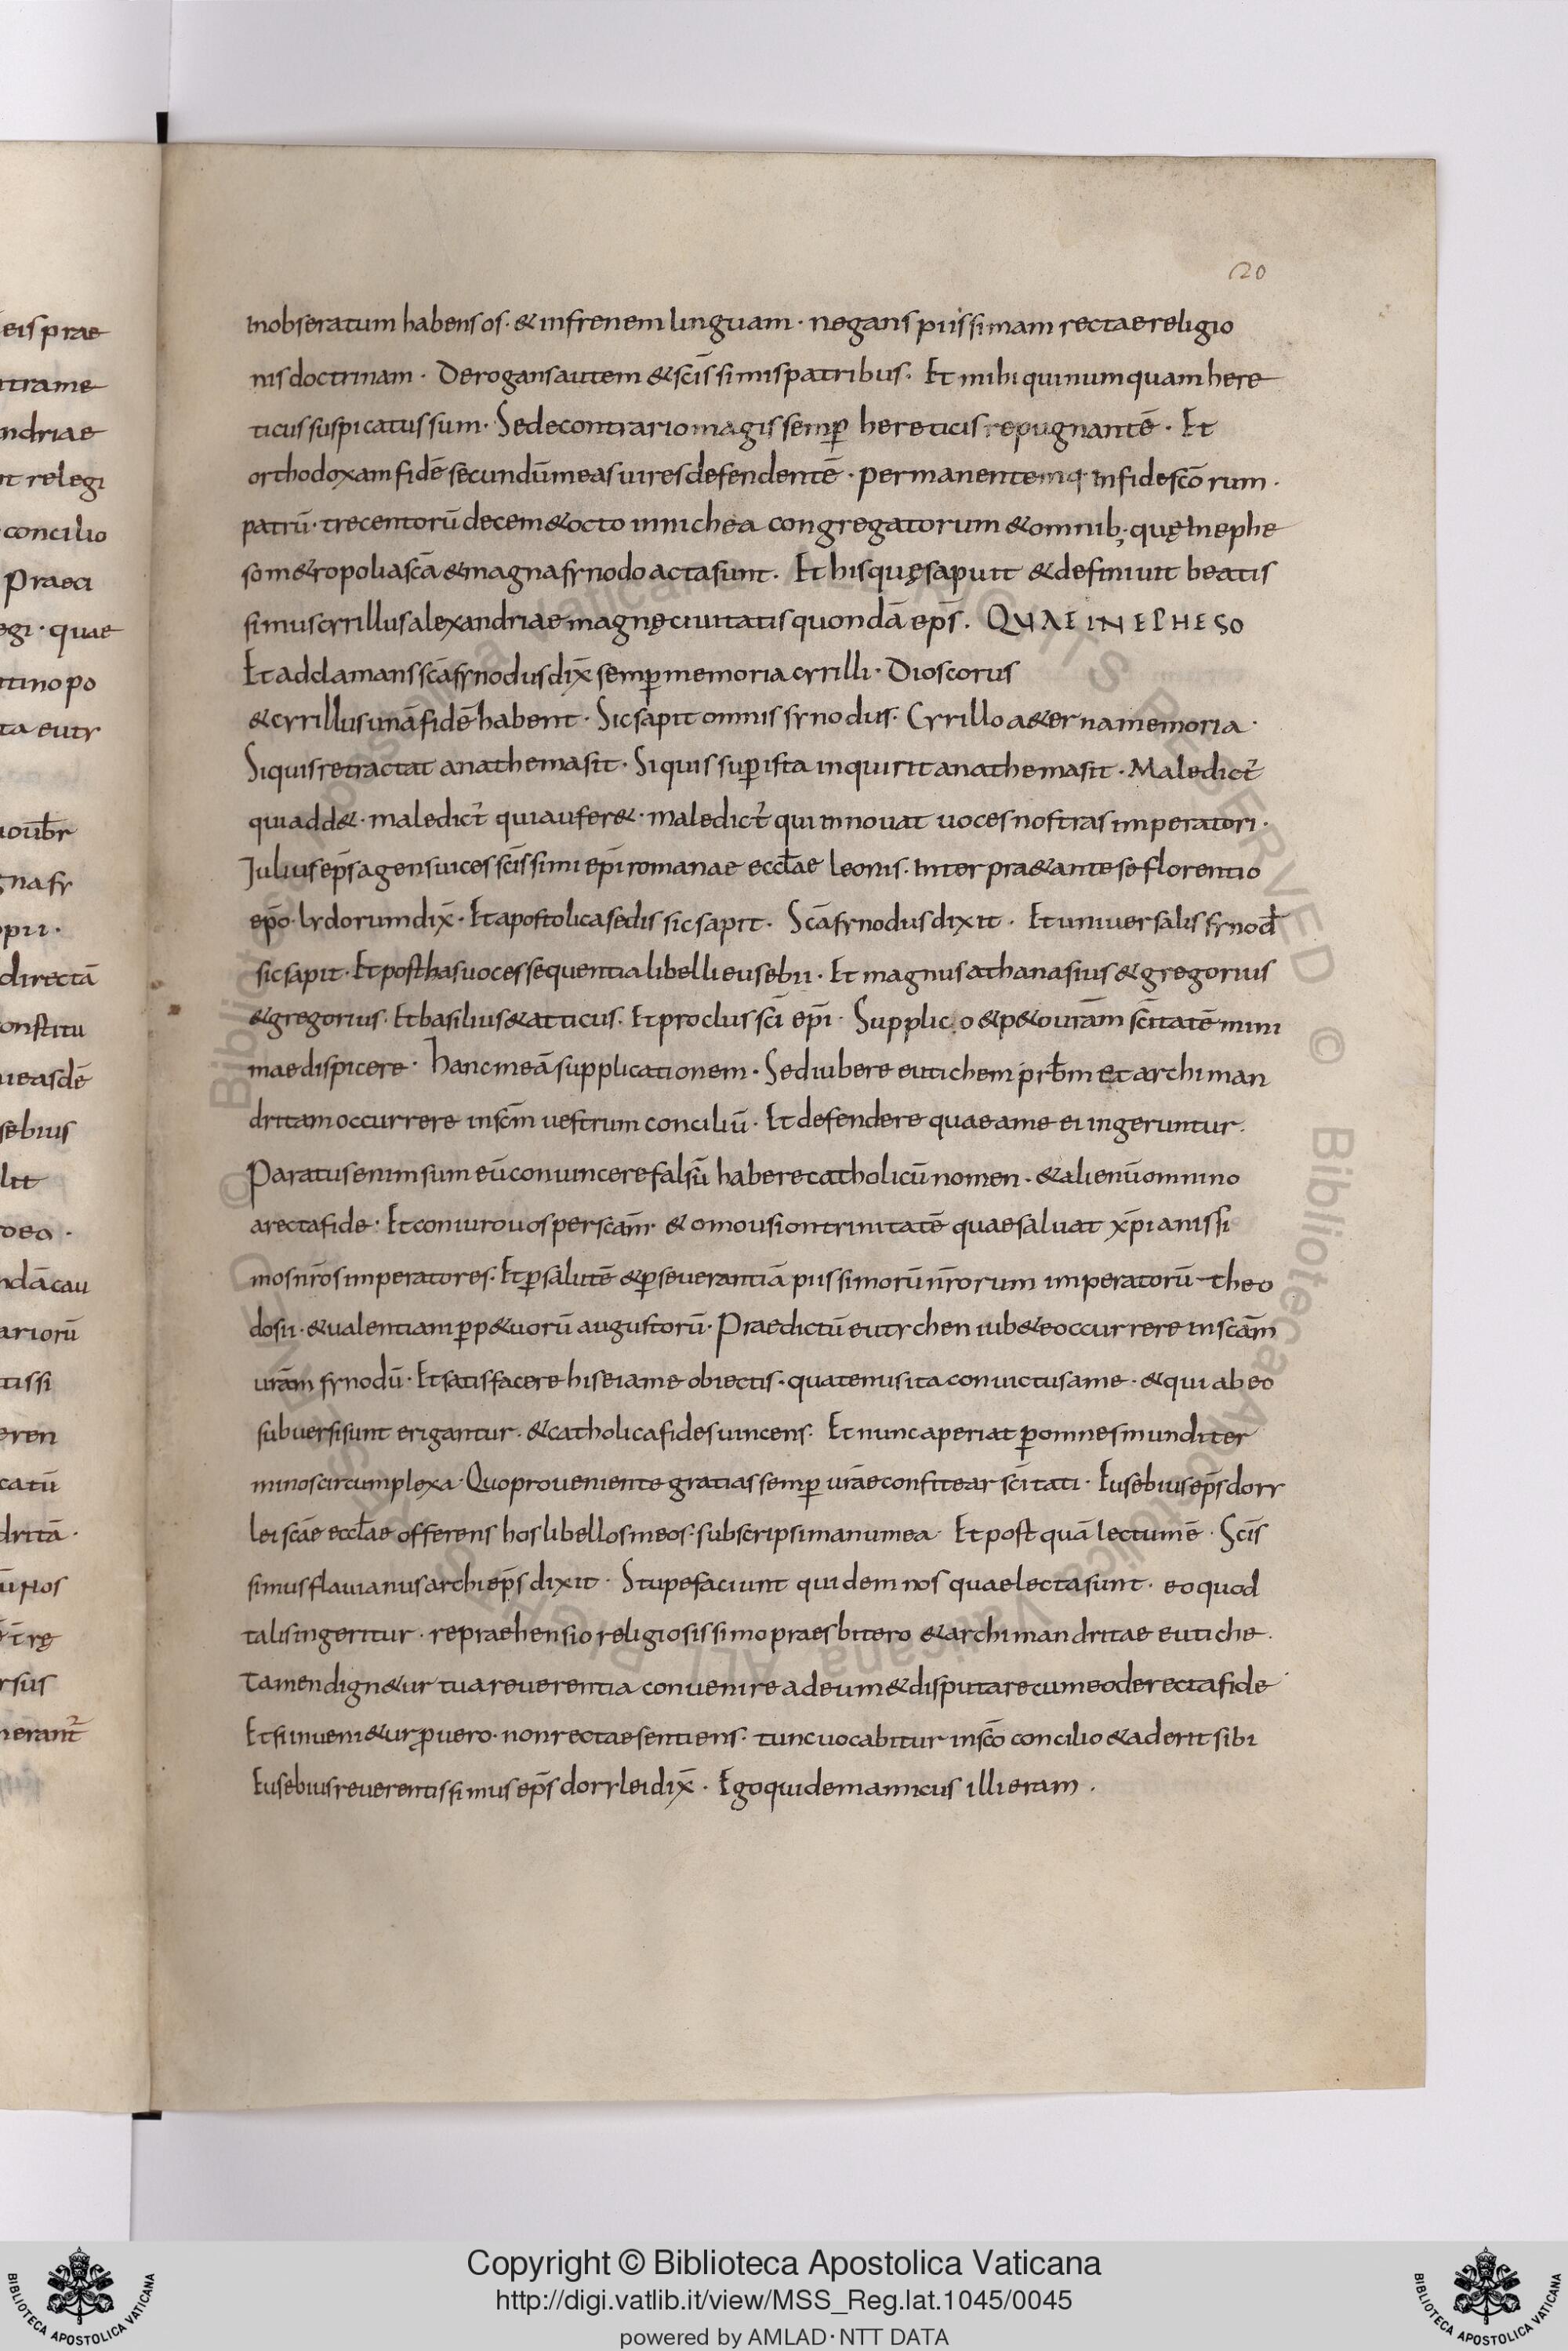 20
eis prae
trame
ndriae
nt relegi
concilio
Praeci
egi · quae
tinopo
ta euty
uoub̄r
gna sy
opii ·
directā
onstitu
ueasdē
sebius
lit
ndā cau
ariorū
tissi
eren
catū
dritā ·
ū nos
rsus
nerant̄
Inobseratum habens os · & infrenem linguam · negans piissimam rectae religio
nis doctrinam · Derogans autem & sc̄issimis patribus · Et mihi qui numquam here
ticus suspicatus sum · Sed e contrario magis semp̄ hereticis repugnantē · Et
orthodoxam fidē secundū meas uires defendentē · permanentemq· In fide sc̄orum ·
patrū · trecentorū decem & octo in nichea congregatorum & omnib; · quę In ephe
so m&ropoli a sc̄a & magna synodo acta sunt · Et his quę saputt & definiuit beatis
simus cyrillus alexandriae magnę ciuitatis quondā ep̄s · QUAE IN EPHESO
Et adclamans sc̄a synodus dix̄ semp̄ memoria cyrilli · Dioscorus
& cyrillus unā fidē habent · Sic sapit omnis synodus · Cyrillo a&erna memoria ·
Siquis retractat anathema sit · Si quis sup̄ ista inquirit anathema sit · Maledict̄
qui add& · maledict̄ qui aufer& · maledict̄ qui innouat uoces nostras imperatori ·
Julius ep̄s agens uices sc̄issimi ep̄i romanae eccl̄ae leonis · Interpr&ante se florentio
ep̄o · lydorum dix̄ · Et apostolica sedis sic sapit · Sc̄a synodus dixit · Et uniuersalis synod̄
sic sapit · Et post has uoces sequentia libelli eusebii · Et magnus athanasius & gregorius
& gregorius · Et basilius & atticus · Et proclus sc̄i ep̄i · Supplico & p&o ur̄am sc̄itatē mini
mae dispicere · hanc meā supplicationem · Sed iubere eutichem prb̄m et archiman
dritam occurrere in sc̄m uestrum conciliū · Et defendere quae a me ei ingeruntur ·
Paratus enim sum eū conuincere falsū habere catholicū nomen · & alienū omnino
a recta fide · Et coniuro uos per sc̄am · & omousion trinitatē quae saluat xp̄ianissi
mos nr̄os imperatores · Et p̄ salutē & p̄seuerantiā piissimorū nr̄orum imperatorū theo
dosii · & ualentiam p̄p&uorū augustorū · Praedictū eutychen iub&e occurrere in sc̄am
ur̄am synodū · Et satisfacere his ei a me obiectis · quatenus ita conuictus a me · & qui ab eo
subuersi sunt erigantur · & catholica fides uincens · Et nunc aperiat p̄ omnes mundi ter
minos circumplexa · Quo proueniente gratias semp̄ ur̄ae confitear sc̄itati · Eusebius ep̄s dory
lei sc̄ae eccl̄ae offerens hos libellos meos · subscripsi manu mea · Et post quā lectum ē · Sc̄is
simus flauianus archiep̄s dixit · Stupefaciunt quidem nos quae lecta sunt · eo quod
talis ingeritur · repraehensio religiosissimo praesbitero & archimandritae eutiche ·
Tamen dign&ur tua reuerentia conuenire ad eum & disputare cum eo de recta fide
Et si inueni&ur p̄ uero · non rectae sentiens · tunc uocabitur in sc̄o concilio & aderit sibi
Eusebius reuerentissimus ep̄s dorylei dix̄ · Ego quidem amicus illi eram ·
Copyright © Biblioteca Apostolica Vaticana
http://digi.vatlib.it/view/MSS_Reg.lat.1045/0045
powered by AMLAD·NTT DATA
BIBLIOTECA APOSTOLICA VATICANA
BIBLIOTECA APOSTOLICA VATICANA